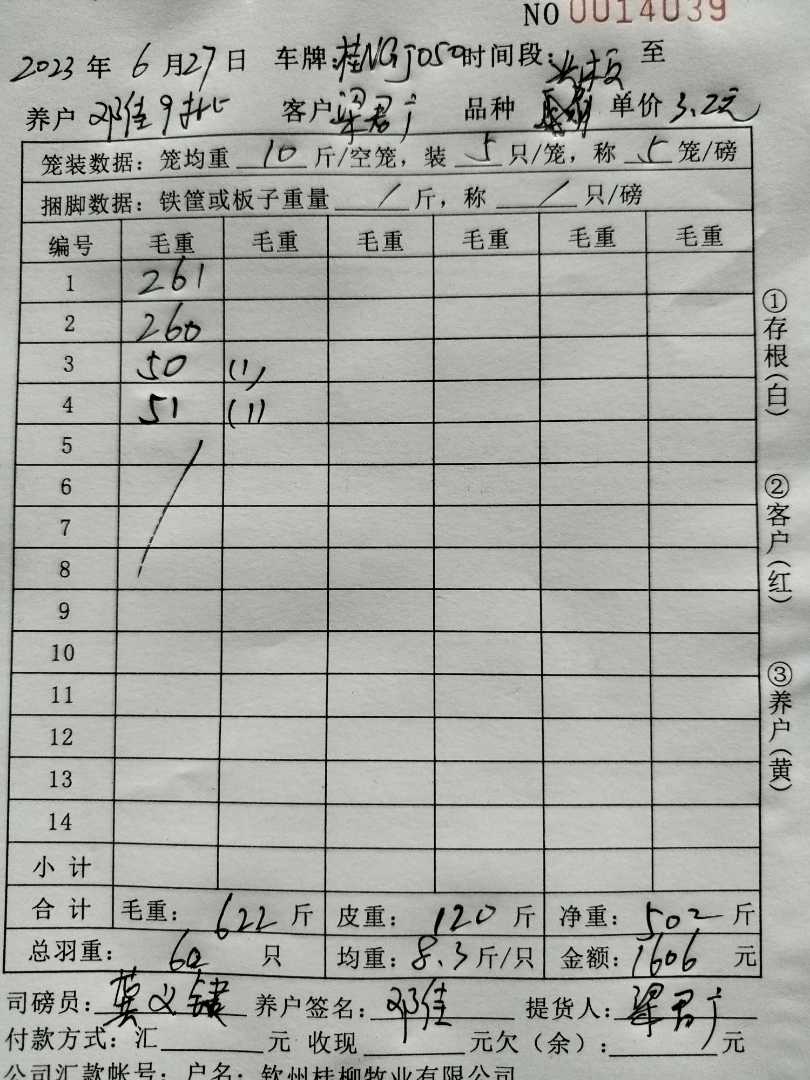 NO 0014039
2023 年 6 月 27 日 车牌: 桂NGJ050 时间段: 至
养户 邓佳9批 客户 梁君广 品种 单价 3.2元
笼装数据: 笼均重 10 斤/空笼, 装 5 只/笼, 称 5 笼/磅
捆脚数据: 铁筐或板子重量 / 斤, 称 / 只/磅
编号 毛重 毛重 毛重 毛重 毛重 毛重
1 261
2 260
3 50 (1)
4 51 (1)
5
6
7
8
9
10
11
12
13
14
小 计
合 计 毛重: 622 斤 皮重: 120 斤 净重: 502 斤
总羽重: 60 只 均重: 8.3 斤/只 金额: 1606 元
司磅员: 莫义 养户签名: 邓佳 提货人: 梁君广
付款方式: 汇 元 收现 元欠（余）: 元
公司汇款帐号: 户名: 钦州桂柳牧业有限公司
①存根（白）
②客户（红）
③养户（黄）